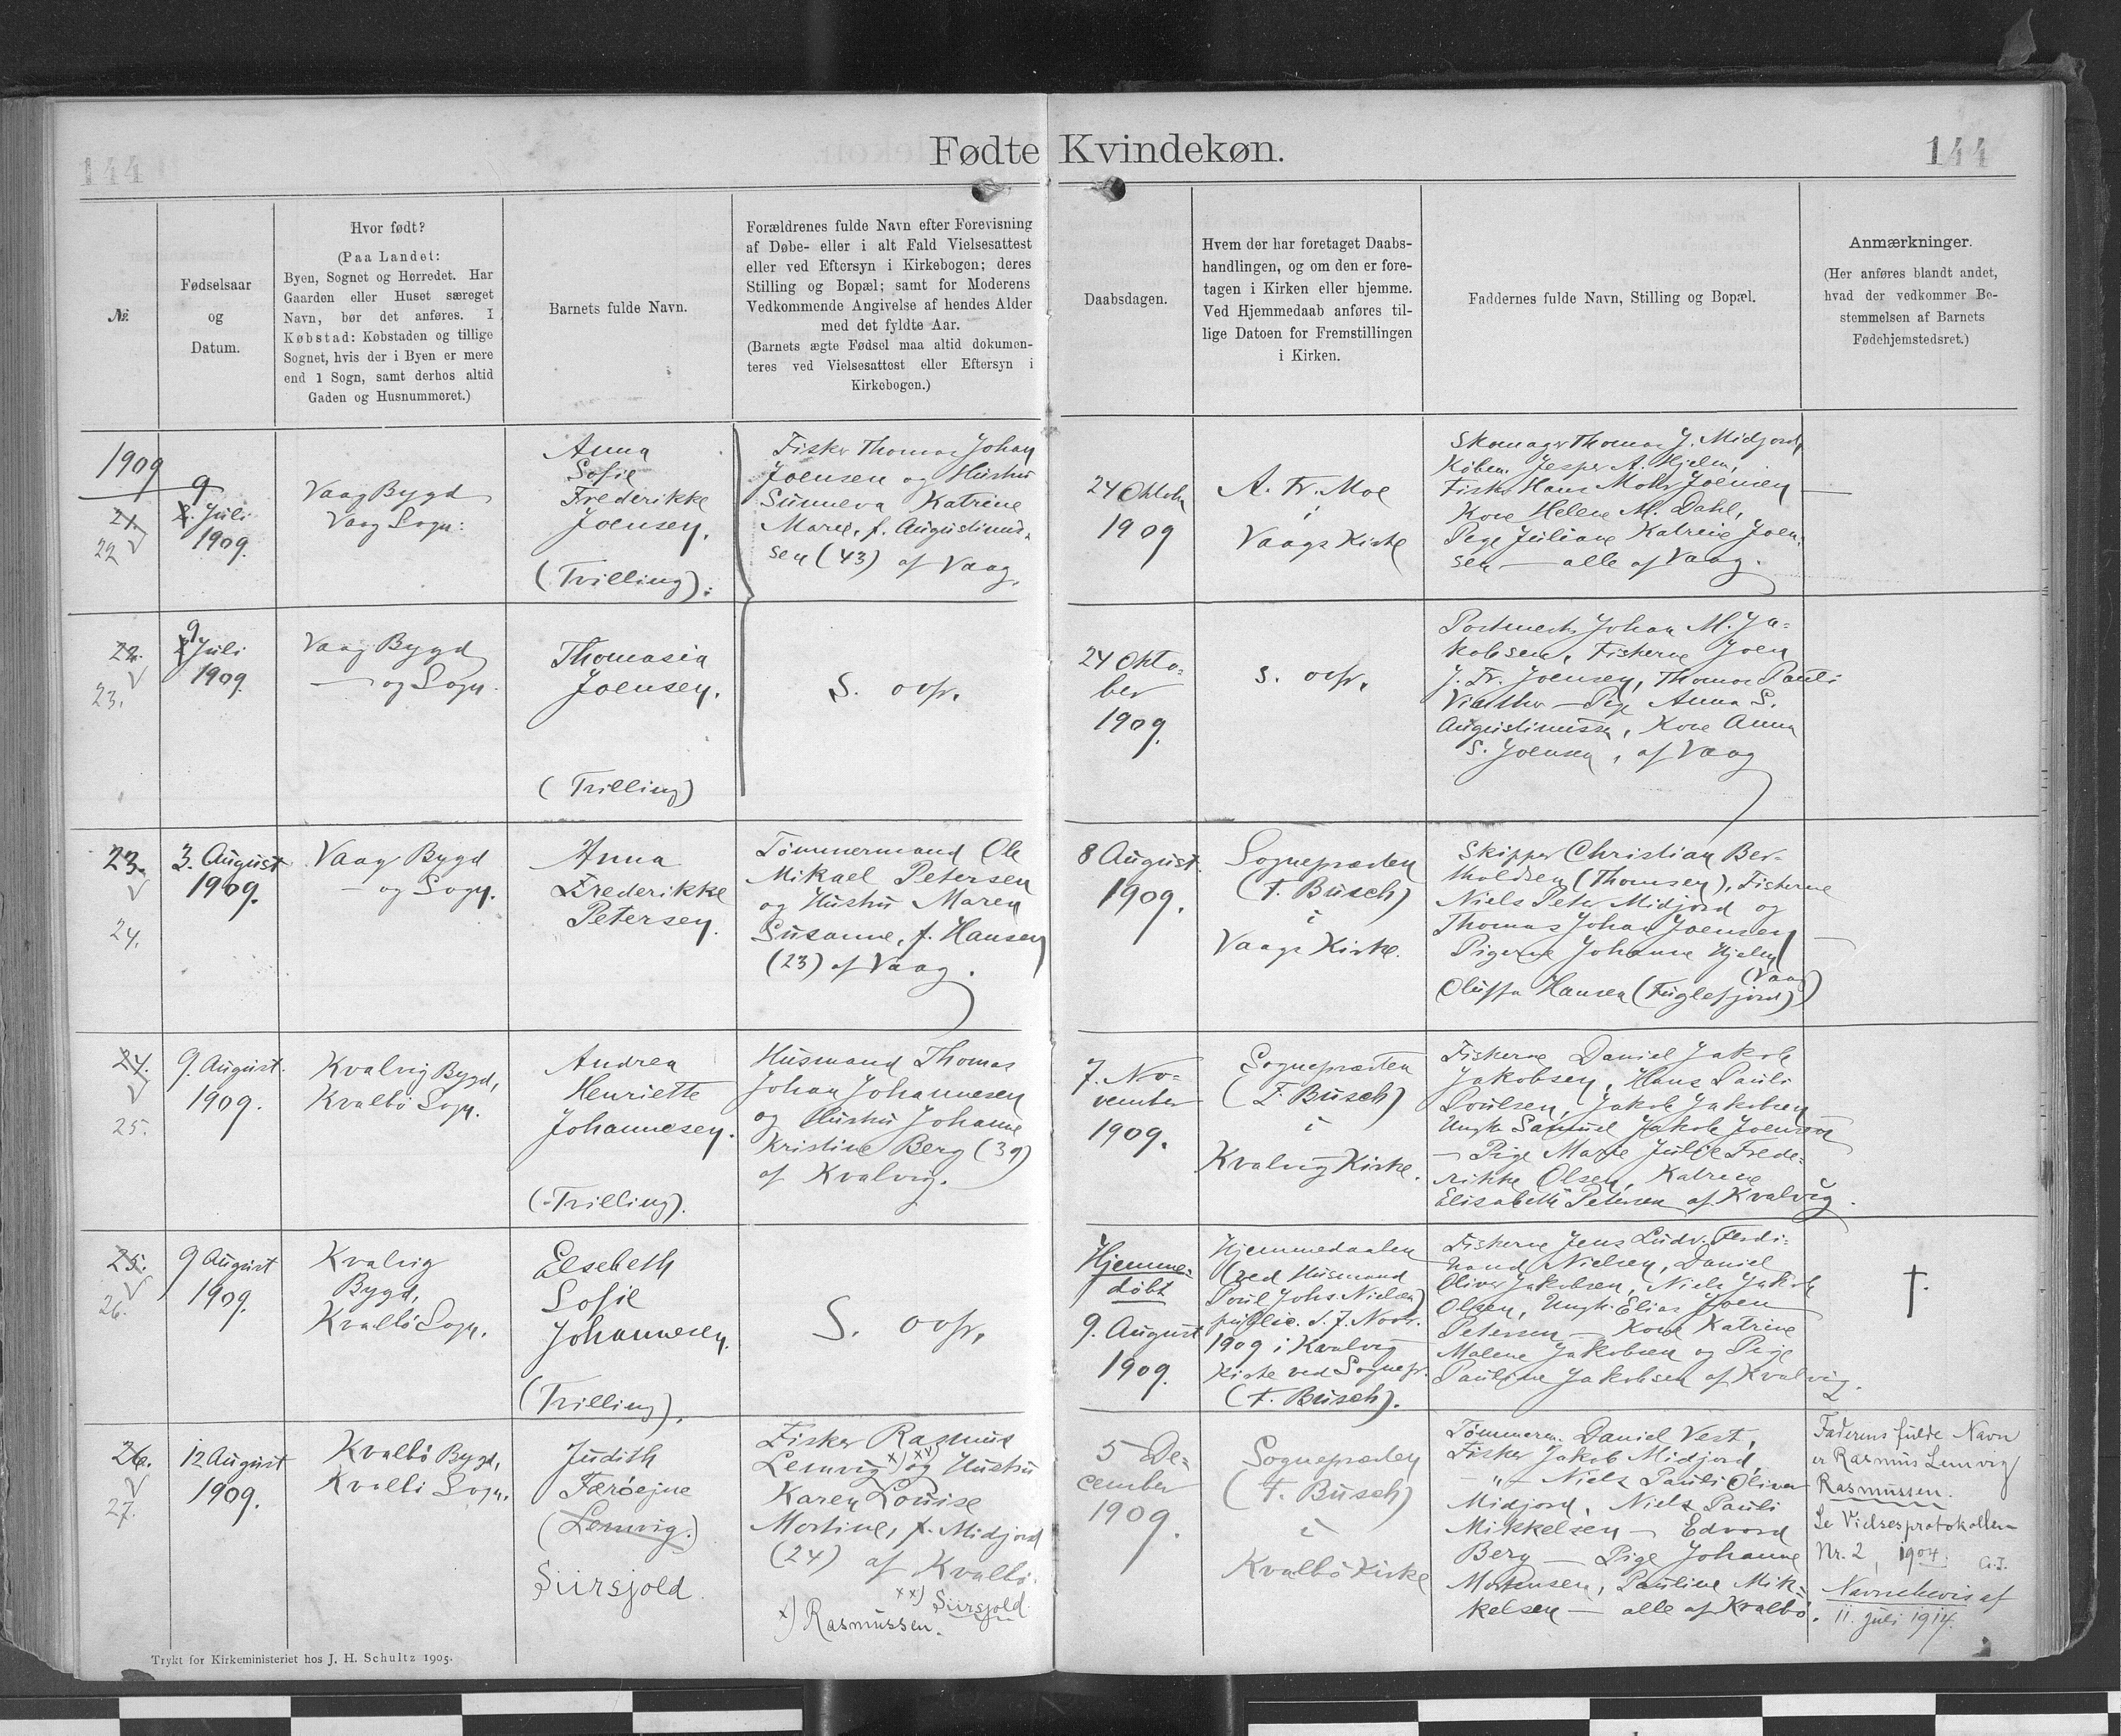 144
Fødte Kvindekøn.
144
№.
Fødselsaar
og
Datum.
Hvor født?
(Paa Landet:
Byen, Sognet og Herredet. Har
Gaarden eller Huset særeget
Navn, bør det anføres. I
Købstad: Købstaden og tillige
Sognet, hvis der i Byen er mere
end 1 Sogn, samt derhos altid
Gaden og Husnummeret.)
Barnets fulde Navn.
Forældrenes fulde Navn efter Forevisning
af Døbe- eller i alt Fald Vielsesattest
eller ved Eftersyn i Kirkebogen; deres
Stilling og Bopæl; samt for Moderens
Vedkommende Angivelse af hendes Alder
med det fyldte Aar.
(Barnets ægte Fødsel maa altid dokumen-
teres ved Vielsesattest eller Eftersyn i
Kirkebogen.)
Daabsdagen.
Hvem der har foretaget Daabs-
handlingen, og om den er fore-
tagen i Kirken eller hjemme.
Ved Hjemmedaab anføres til-
lige Datoen for Fremstillingen
i Kirken.
Faddernes fulde Navn, Stilling og Bopæl.
Anmærkninger.
(Her anføres blandt andet,
hvad der vedkommer Be-
stemmelsen af Barnets
Fødehjemstedsret.)
1909
21.
22
9
Juli
1909.
Vaag Bygd
Vaag Sogn:
Anna
Sofie
Frederikke
Joensen.
(Trilling).
Fisker Thomas Johan
Joensen og Hustru
Sunneva Katrine
Marie, f. Augustinus-
sen (43) af Vaag.
24 Oktob
1909
A. Fr. Moe
i
Vaags Kirke
Skomager Thomas J. Midjord,
Købm. Jesper A. Hjelm,
Fisker Hans Mohr Joensen
Kone Helene M. Dahl,
Pige Juliane Katrine Joen-
sen — alle af Vaag.
—
22.
23.
9
Juli
1909.
Vaag Bygd
— og Sogn.
Thomasia
Joensen.
(Trilling)
S. ovfr.
24 Okto-
ber
1909.
s. ovfr.
Postmester Johan M. Ja-
kobsen, Fiskerne Joen
J. Fr. Joensen, Thomas Pauli
Vinther — Pige Anna S.
Augustinussen, Kone Anna
S. Joensen, af Vaag
23.
24.
3. August
1909.
Vaag Bygd
— og Sogn.
Anna
Frederikke
Petersen.
Tømmermand Ole
Mikael Petersen
og Hustru Maren
Susanne, f. Hansen
(23) af Vaag.
8 August
1909.
Sognepræsten
(F. Busch)
i
Vaags Kirke.
Skipper Christian Ber-
tholdsen (Thomsen), Fiskerne
Niels Peter Midjord og
Thomas Johan Joensen
Pigerne Johanne Hjelm
(Vaag)
Oluffa Hansen (Fuglefjord)
—
24.
25.
9. August
1909.
Kvalvig Bygd,
Kvalbö Sogn.
Andrea
Henriette
Johannesen.
(Trilling).
Husmand Thomas
Johan Johannesen
og Hustru Johanne
Kristine Berg (39)
af Kvalvig.
7. No-
vember
1909.
Sognepræsten
(F. Busch)
i
Kvalvig Kirke.
Fiskerne Daniel Jakob
Jakobsen, Hans Pauli
Poulsen, Jakob Jakobsen
Ungk. Samuel Jakob Joensen
— Pige Marie Julie Frede-
rikke Olsen, Katrine
Elisabeth Petersen af Kvalvig.
25.
26.
9 August
1909.
Kvalvig
Bygd,
Kvalbö Sogn.
Elsebeth
Sofie
Johannesen.
(Trilling).
S. ovfr.
Hjemme-
døbt
9. August
1909.
Hjemmedaaben
(ved Husmand
Poul Johs. Nielsen)
public. d. 7. Novr.
1909 i Kvalvig
Kirke ved Sognepr.
(F. Busch).
Fiskerne Jens Ludv. Ferdi-
nand Nielsen, Daniel
Oliver Jakobsen, Niels Jakob
Olsen, Ungk. Elias Joen
Petersen — Kone Katrine
Malene Jakobsen og Pige
Pauline Jakobsen af Kvalvig.
†.
26.
27.
12 August
1909.
Kvalbö Bygd,
Kvalbö Sogn.
Judith
Færöejne
(Lemvig.)
Siirsjold.
Fisker Rasmus
Lemvig x) xx) og Hustru
Karen Louise
Mortine, f. Midjord
(24) af Kvalbö.
xx) Siirsjold
x) Rasmussen.
5 De-
cember
1909.
Sognepræsten
(F. Busch)
i
Kvalbö Kirke
Tømmerm. Daniel Vest,
Fisker Jakob Midjord,
— „ — Niels Pauli Oliver
Midjord, Niels Pauli
Mikkelsen — Edvard
Berg — Pige Johanne
Mortensen, Pauline Mik-
kelsen — alle af Kvalbö.
Faderens fulde Navn
er Rasmus Lemvig
Rasmussen.
Se Vielsesprotokollen
Nr. 2, 1904. G.J.
Navnebevis af
11. juli 1914.
Trykt for Kirkeministeriet hos J. H. Schultz 1905.